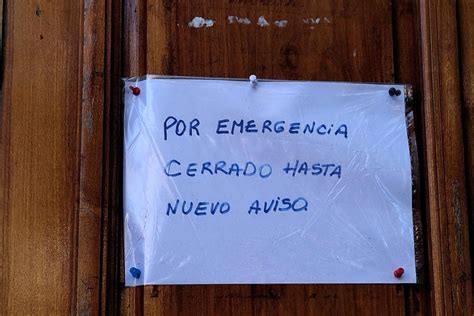 POR EMERGENCIA
CERRADO HASTA
NUEVO AVISO